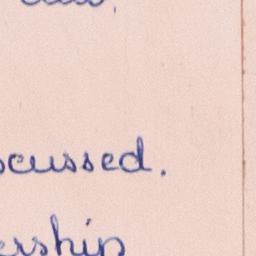 scussed.
ership